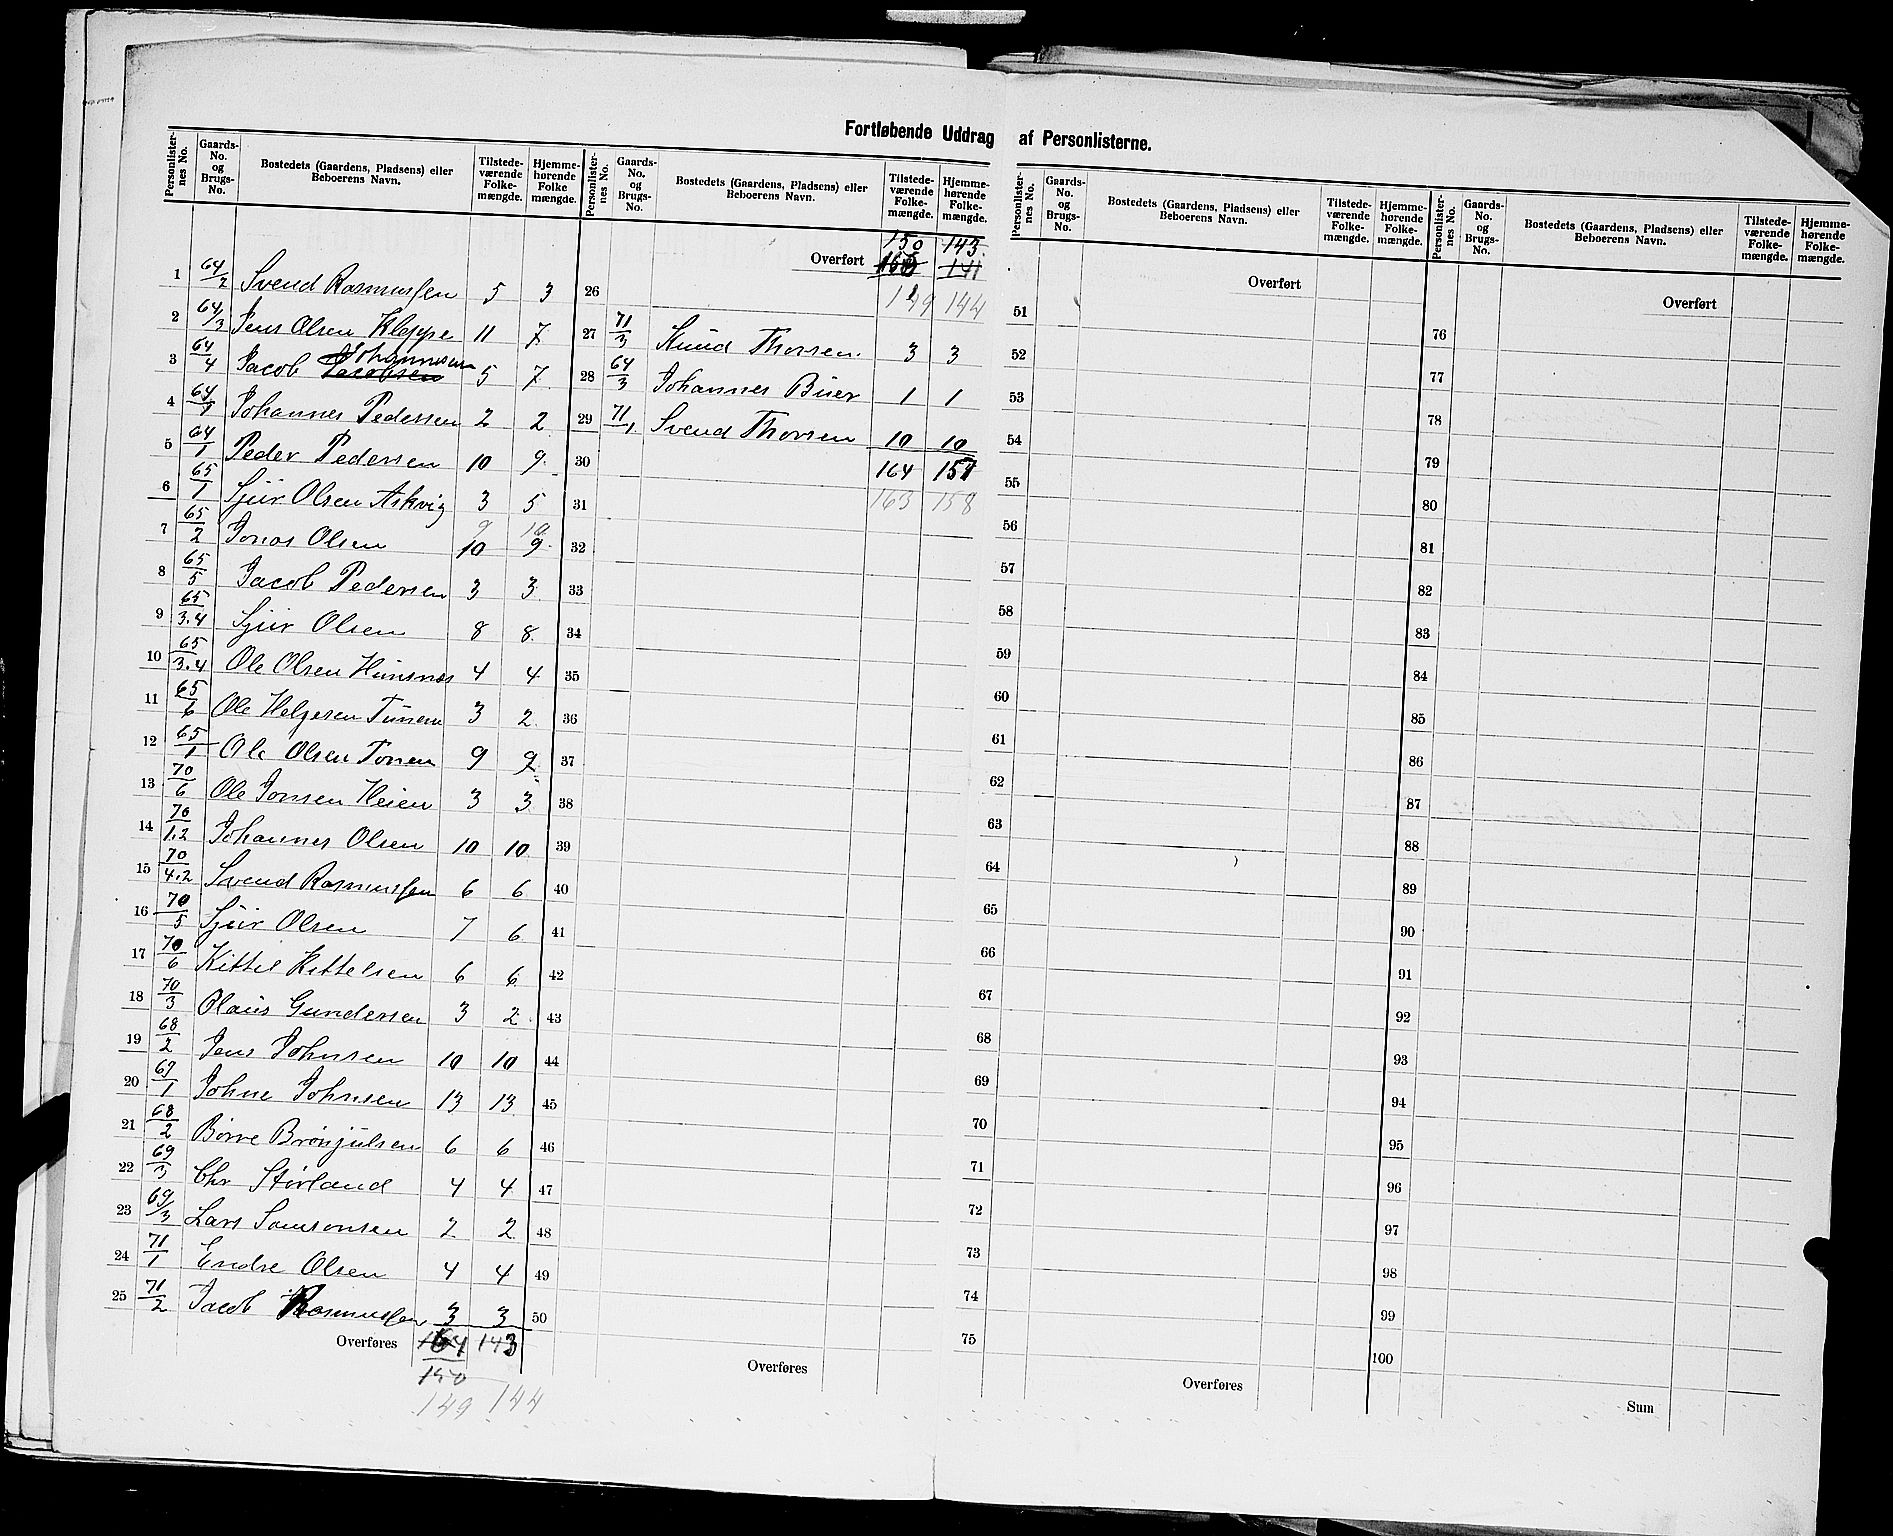 Fortløbende Uddrag af Personlisterne.
Personlister-nes No. | Gaards-No. og Brugs-No. | Bostedets (Gaardens, Pladsens) eller Beboerens Navn. | Tilstede-værende Folke-mængde. | Hjemme-hørende Folke mængde.
1 64/2 Svend Rasmussen 5 3
2 64/3 Jens Olsen Kleppe 11 7
3 64/4 Jacob Jacobsen Johannesen 5 7
4 64/1 Johannes Pedersen 2 2
5 64/1 Peder Pedersen 10 9
6 65/1 Sjur Olsen Askvig 3 5
7 65/2 Jonas Olsen 10 9 9 10
8 65/5 Jacob Pedersen 3 3
9 65/3.4 Sjur Olsen 8 8
10 65/3.4 Ole Olsen Hunsnes 4 4
11 65/6 Ole Helgesen Tunem 3 2
12 65/1 Ole Olsen Tonem 9 9
13 70/6 Ole Jonsen Heien 3 3
14 70/1.2 Johannes Olsen 10 10
15 70/4.2 Svend Rasmussen 6 6
16 70/5 Sjur Olsen 7 6
17 70/6 Kittil Kittelsen 6 6
18 70/3 Olaus Gundersen 3 2
19 68/2 Jens Johnsen 10 10
20 69/1 Johne Johnsen 13 13
21 68/2 Børre Brönjulsen 6 6
22 69/3 Chr Størland 4 4
23 69/3 Lars Samsonsen 2 2
24 71/1 Endre Olsen 4 4
25 71/2 Jacob Rasmussen 3 3
Overføres 164 143
150
149 144
Personlister-nes No. | Gaards-No. og Brugs-No. | Bostedets (Gaardens, Pladsens) eller Beboerens Navn. | Tilstede-værende Folke-mængde. | Hjemme-hørende Folke-mængde.
150 143
Overført 141
26 149 144
27 71/3 Knud Thorsen. 3 3
28 64/3 Johannes Buer 1 1
29 71/1 Svend Thorsen 10 10
30 164 157
31 163 158
32
33
34
35
36
37
38
39
40
41
42
43
44
45
46
47
48
49
50
Overføres
Personlister-nes No. | Gaards-No. og Brugs-No. | Bostedets (Gaardens, Pladsens) eller Beboerens Navn. | Tilstede-værende Folke-mængde. | Hjemme-hørende Folke-mængde.
Overført
51
52
53
54
55
56
57
58
59
60
61
62
63
64
65
66
67
68
69
70
71
72
73
74
75
Overføres
Personlister-nes No. | Gaards-No. og Brugs-No. | Bostedets (Gaardens, Pladsens) eller Beboerens Navn. | Tilstede-værende Folke-mængde. | Hjemme-hørende Folke-mængde.
Overført
76
77
78
79
80
81
82
83
84
85
86
87
88
89
90
91
92
93
94
95
96
97
98
99
100
Sum